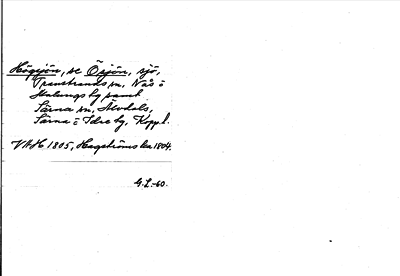 Högsjön, se Örsjön, sjö,
Transtrands sn, Nås o
Malungs tg samt
Särna sn, Älvdals,
Särna o Idre tg, Kopp.l.
VAH 1805, Hagströms ka 1804.
G.L.-60.